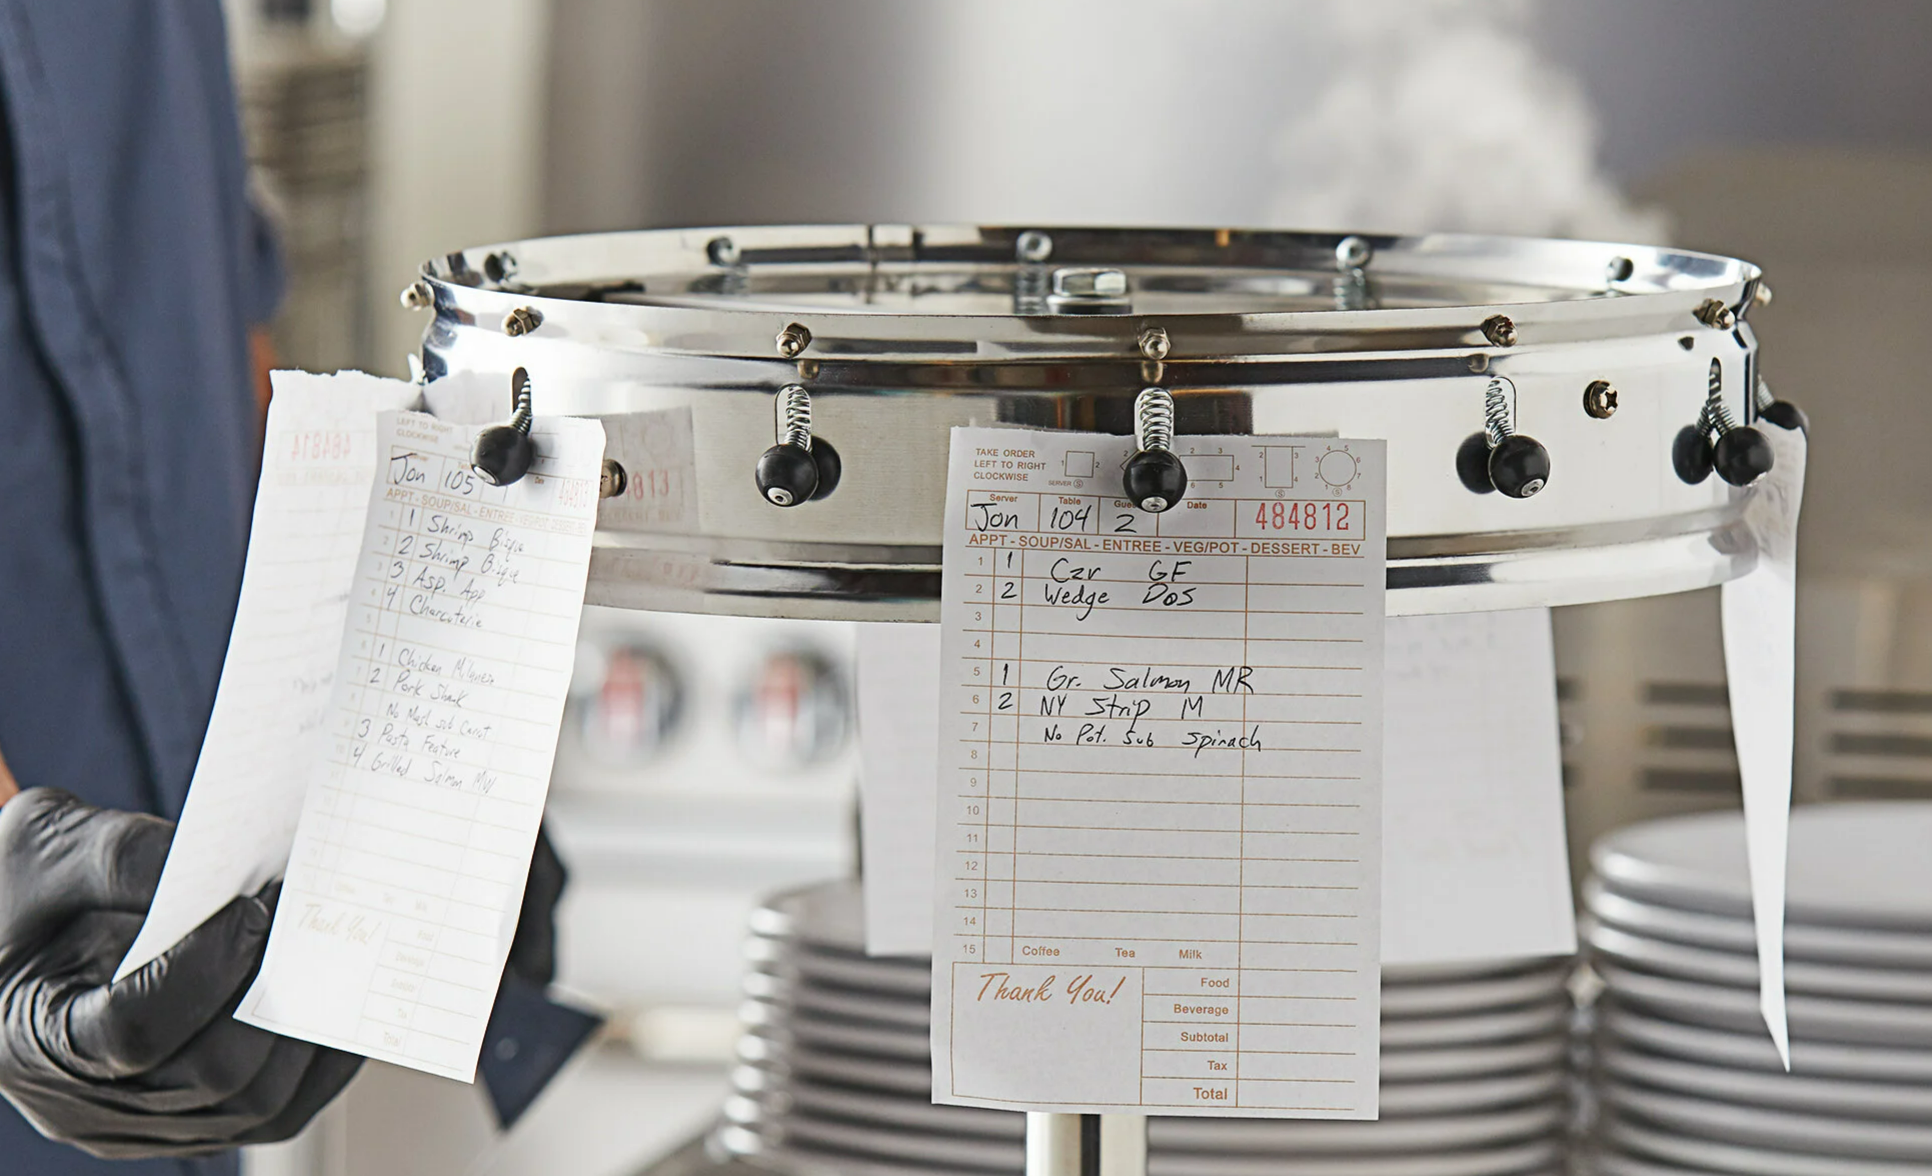 484814
LEFT TO RIGHT
CLOCKWISE
Jon 105
Date
APPT - SOUP/SAL - ENTREE - VEG/POT - DESSERT - BEV
1 1 Shrimp Bisque
2 2 Shrimp Bisque
3 3 Asp. App
4 4 Charcuterie
1 Chicken Milanese
2 Pork Shank
No Mash sub Carot
3 Pasta Feature
4 Grilled Salmon MW
Thank You!
Food
Beverage
Tax
Total
813
TAKE ORDER
LEFT TO RIGHT
CLOCKWISE
SERVER S
Server Table Date
Jon 104 2 484812
APPT - SOUP/SAL - ENTREE - VEG/POT - DESSERT - BEV
1 1 Czr GF
2 2 Wedge DOS
3
4
5 1 Gr. Salmon MR
6 2 NY Strip M
7 No Pot. Sub Spinach
8
9
10
11
12
13
14
15 Coffee Tea Milk
Thank You!
Food
Beverage
Subtotal
Tax
Total